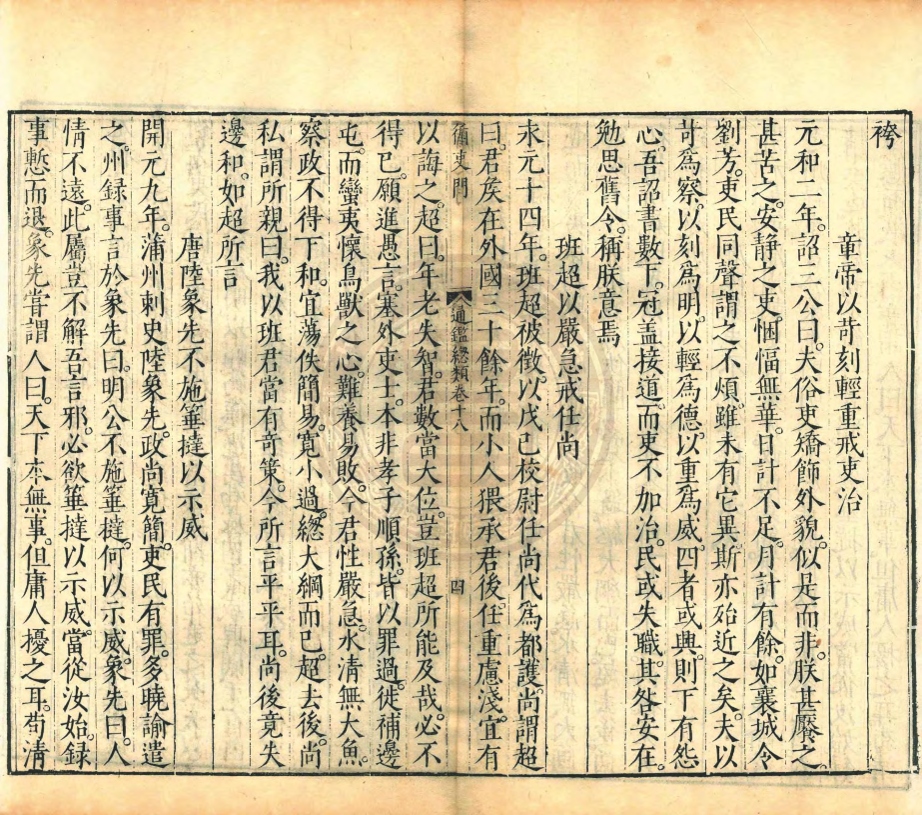 袴
章帝以苛刻輕重戒吏治
元和二年。詔三公曰。夫俗吏矯飾外貌。似是而非。朕甚饜之。
甚苦之。安靜之吏。悃愊無華。日計不足。月計有餘。如襄城令
劉芳。吏民同聲謂之不煩。雖未有它異。斯亦殆近之矣。夫以
苛爲察。以刻爲明。以輕爲德。以重爲威。四者或興。則下有怨
心。吾詔書數下。冠盖接道。而吏不加治。民或失職。其咎安在。
勉思舊令。稱朕意焉
班超以嚴急戒任尚
永元十四年。班超被徵。以戊己校尉任尚代爲都護。尚謂超
曰。君矦在外國三十餘年。而小人猥承君後。任重慮淺。宜有
循吏門
通鑑總類卷十八
四
以誨之。超曰。年老失智。君數當大位。豈班超所能及哉。必不
得已。願進愚言。塞外吏士。本非孝子順孫。皆以罪過。徙補邊
屯。而蠻夷懷鳥獸之心。難養易敗。今君性嚴急。水清無大魚。
察政不得下和。宜蕩佚簡易。寛小過。緫大綱而已。超去後。尚
私謂所親曰。我以班君當有竒策。今所言平平耳。尚後竟失
邊和。如超所言
唐陸象先不施箠撻以示威
開元九年。蒲州刺史陸象先。政尚寛簡。吏民有罪。多曉諭遣
之。州録事言於象先曰。明公不施箠撻。何以示威。象先曰。人
情不遠。此屬豈不解吾言邪。必欲箠撻以示威。當從汝始。録
事慙而退。象先嘗謂人曰。天下本無事。但庸人擾之耳。苟清